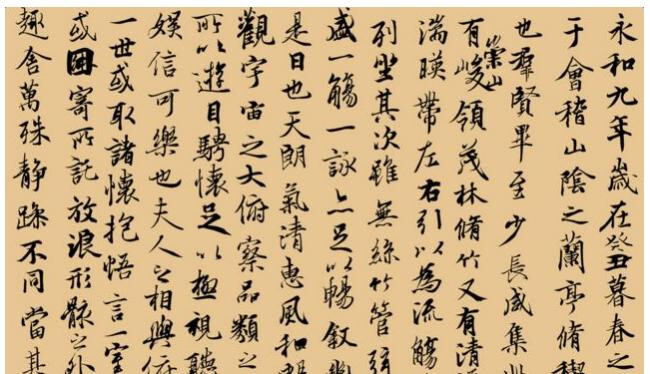 永和九年歲在癸丑暮春之
于會稽山陰之蘭亭脩禊
也羣賢畢至少長咸集此
有崇山峻領茂林脩竹又有清
湍暎帶左右引以為流觴
列坐其次雖無絲竹管弦
盛一觴一詠亦足以暢叙幽
是日也天朗氣清惠風和暢
觀宇宙之大俯察品類之
所以遊目騁懷足以極視聽
娛信可樂也夫人之相與俯
一世或取諸懷抱悟言一室
或因寄所託放浪形骸之外
趣舍萬殊靜躁不同當其